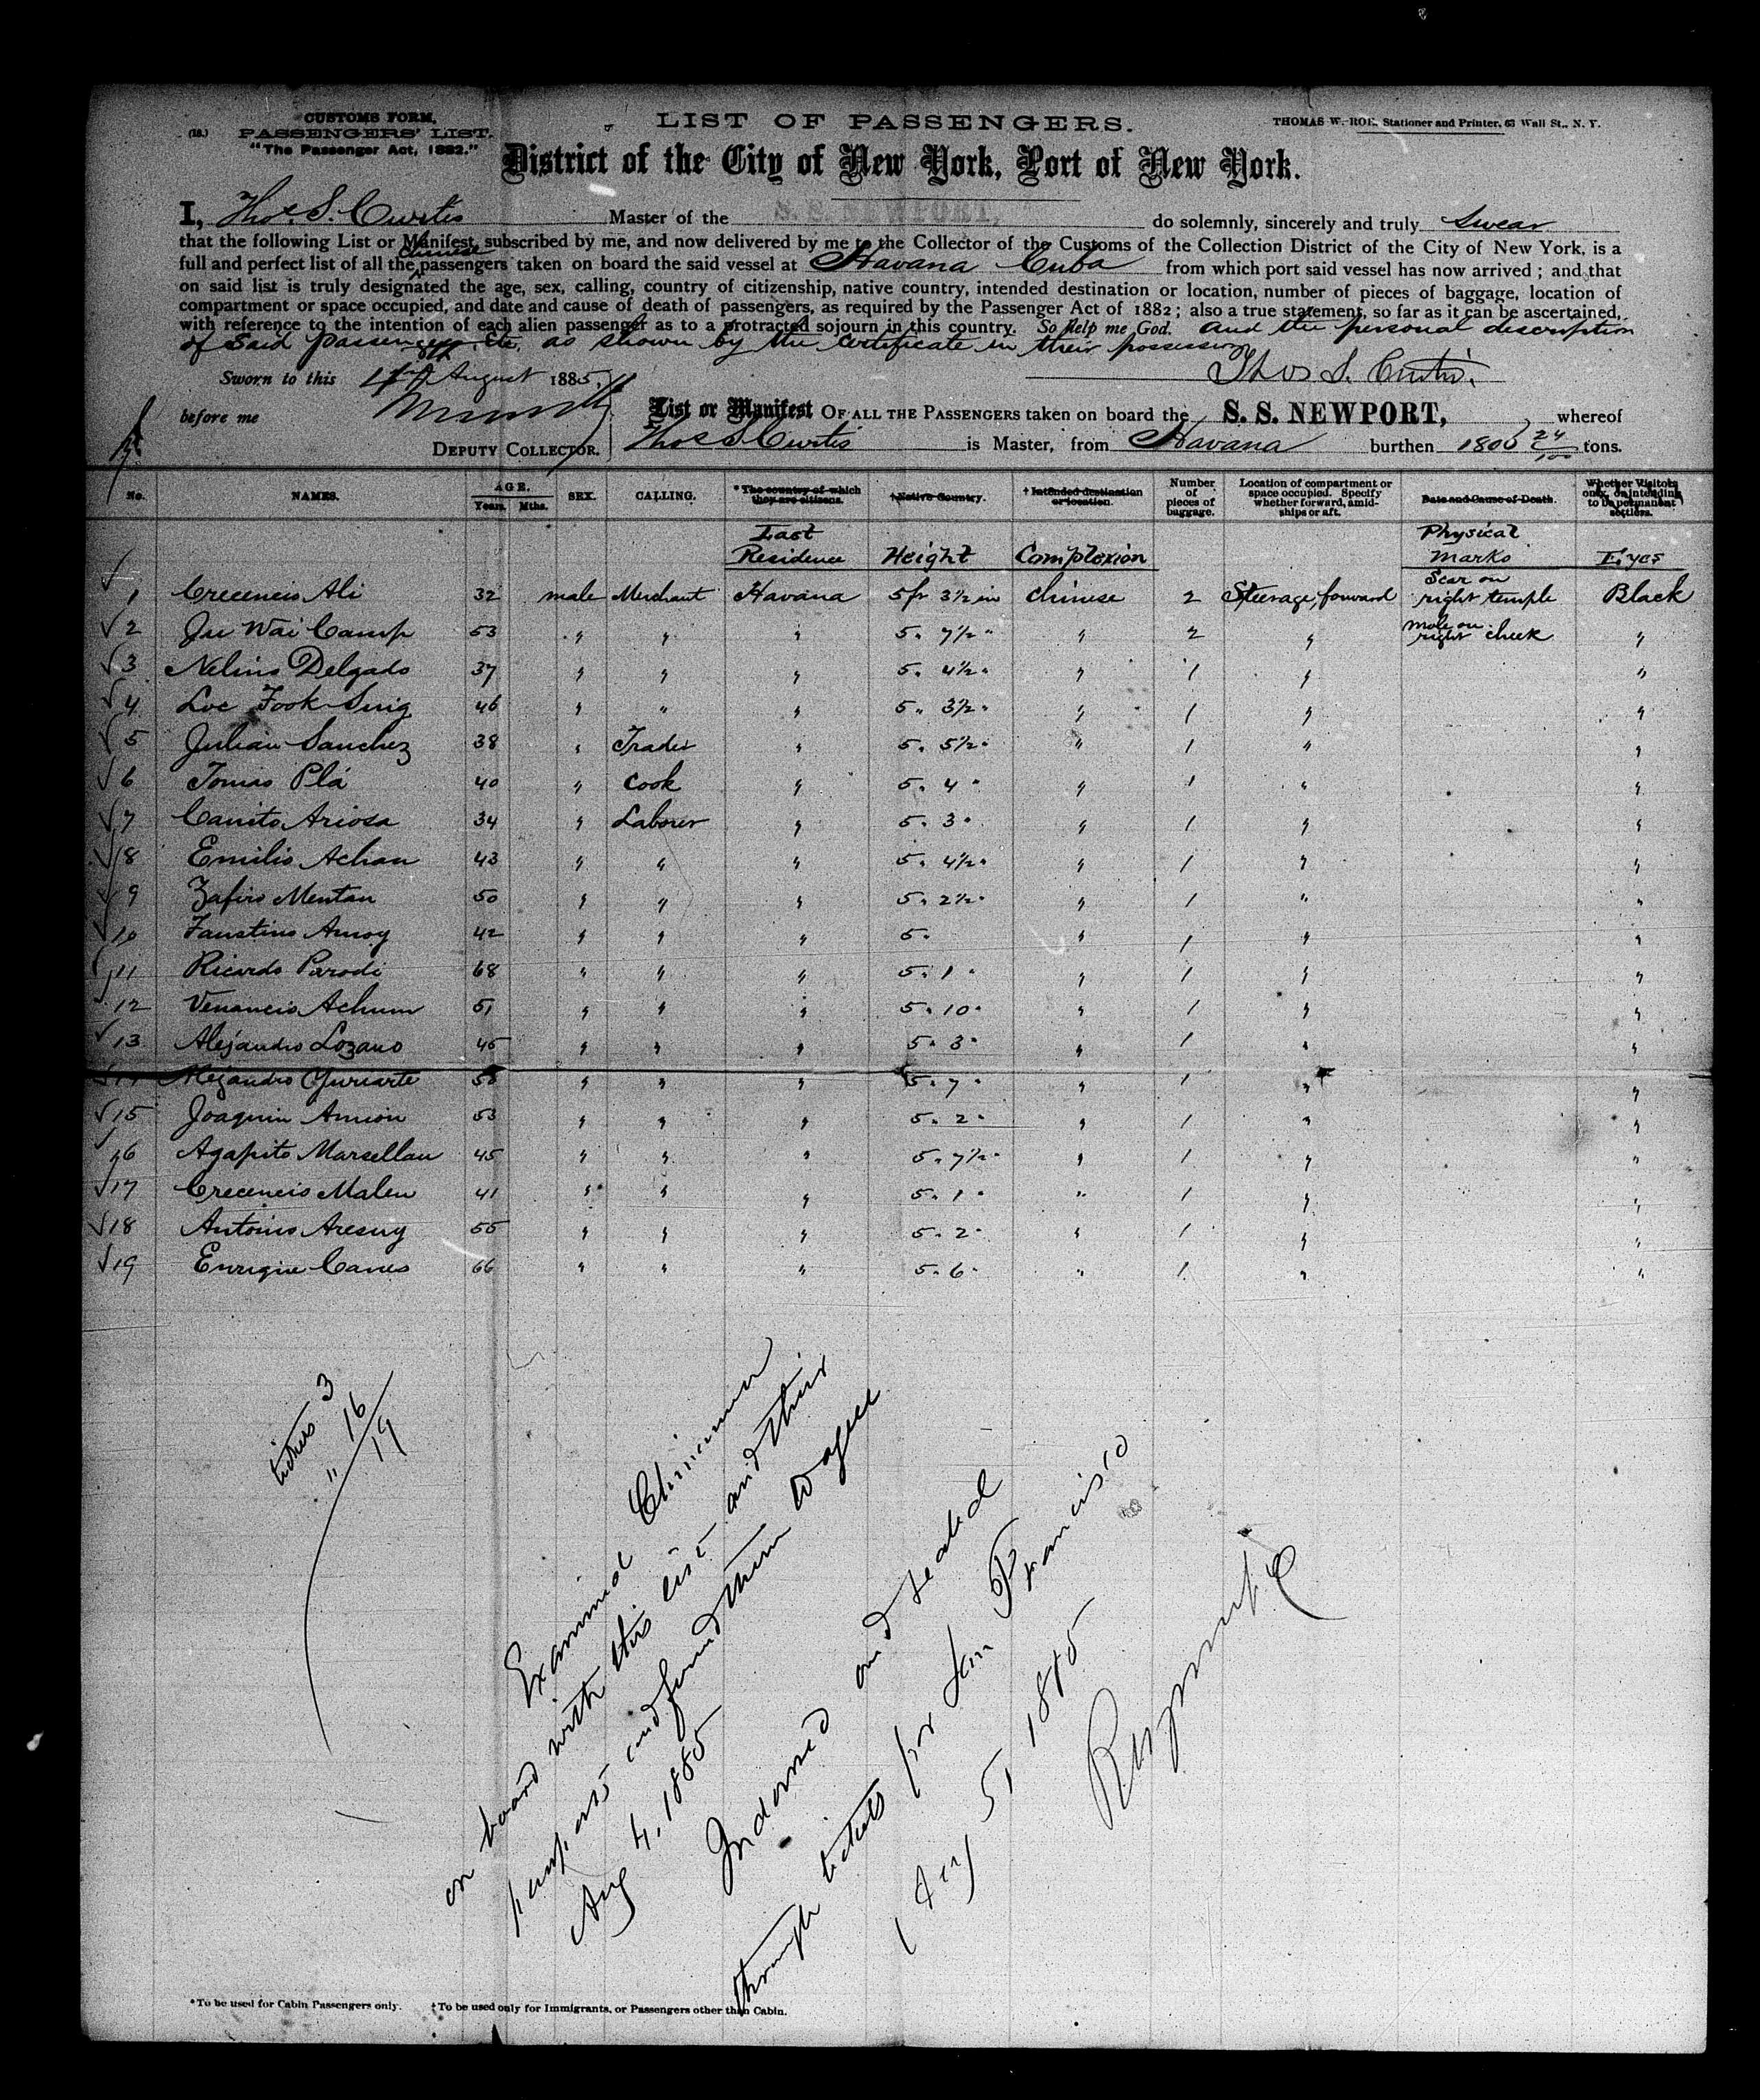 CUSTOMS FORM.
(18.) PASSENGERS' LIST.
"The Passenger Act, 1882."
LIST OF PASSENGERS.
THOMAS W. ROE, Stationer and Printer, 63 Wall St., N. Y.
District of the City of New York, Port of New York.
I, Thos. S. Curtis Master of the S. S. NEWPORT, do solemnly, sincerely and truly swear
that the following List or Manifest, subscribed by me, and now delivered by me to the Collector of the Customs of the Collection District of the City of New York, is a
full and perfect list of all the Chinese passengers taken on board the said vessel at Havana Cuba from which port said vessel has now arrived; and that
on said list is truly designated the age, sex, calling, country of citizenship, native country, intended destination or location, number of pieces of baggage, location of
compartment or space occupied, and date and cause of death of passengers, as required by the Passenger Act of 1882; also a true statement, so far as it can be ascertained,
with reference to the intention of each alien passenger as to a protracted sojourn in this country. So help me God. and the personal description
of said passengers etc. as shown by the certificate in their possession
Sworn to this August 1885. Thos S. Curtis.
before me
DEPUTY COLLECTOR.
List or Manifest OF ALL THE PASSENGERS taken on board the S. S. NEWPORT, whereof
Thos S Curtis is Master, from Havana burthen 1806 24/100 tons.
No. NAMES. AGE. Years. Mths. SEX. CALLING. *The country of which they are citizens. †Native Country. †Intended destination or location. Number of pieces of baggage. Location of compartment or space occupied. Specify whether forward, amidships or aft. Date and Cause of Death. Whether Visitors only, or intending to be permanent settlers.
Last Residence Height Complexion Physical Marks Eyes
1 Crecencio Ali 32 male Merchant Havana 5ft 3½ in Chinese 2 Steerage, forward Scar on right temple Black
2 Ju Wai Camp 53 " " " 5 " 7½ " " 2 " mole on right cheek "
3 Nelino Delgado 37 " " " 5 " 4½ " " 1 " "
4 Loc Fook Sing 46 " " " 5 " 3½ " " 1 " "
5 Julian Sanchez 38 " Trader " 5 " 5½ " " 1 " "
6 Tomas Plá 40 " Cook " 5 " 4 " " 1 " "
7 Canito Ariosa 34 " Laborer " 5 " 3 " " 1 " "
8 Emilio Achan 43 " " " 5 " 4½ " " 1 " "
9 Zafiro Mentan 50 " " " 5 " 2½ " " 1 " "
10 Faustino Amoy 42 " " " 5 " " 1 " "
11 Ricardo Parodi 68 " " " 5 " 1 " " 1 " "
12 Venancio Achum 51 " " " 5 " 10 " " 1 " "
13 Alejandro Lozano 45 " " " 5 " 3 " " 1 " "
14 Alejandro Yuriarte 58 " " " 5 " 7 " " 1 " "
15 Joaquin Amion 53 " " " 5 " 2 " " 1 " "
16 Agapito Marsellan 45 " " " 5 " 7½ " " 1 " "
17 Crecencio Malen 41 " " " 5 " 1 " " 1 " "
18 Antonio Aresuy 55 " " " 5 " 2 " " 1 " "
19 Enrique Canes 66 " " " 5 " 6 " " 1 " "
tickets 3
" 16
19
Examined Chinamen
on board with this list and their
passports and found them to agree
Aug 4, 1885
Indorsed and sealed
through tickets for San Francisco
Aug 5, 1885
*To be used for Cabin Passengers only. †To be used only for Immigrants, or Passengers other than Cabin.